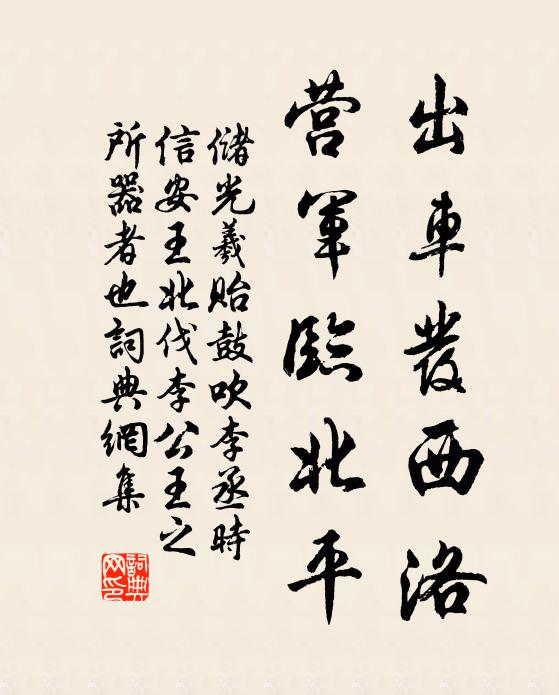 出車發西洛
營軍臨北平
儲光羲貽鼓吹李丞時
信安王北伐李公王之
所器者也詞典網集
詞典網印